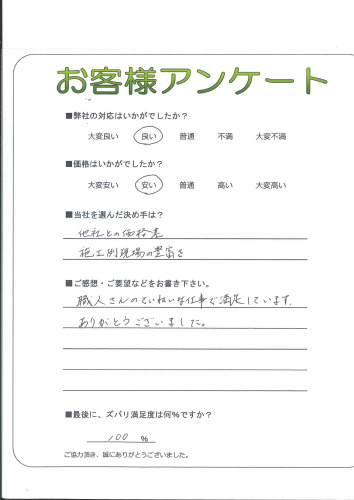 お客様アンケート
■弊社の対応はいかがでしたか?
大変良い 良い 普通 不満 大変不満
■価格はいかがでしたか?
大変安い 安い 普通 高い 大変高い
■当社を選んだ決め手は?
他社との価格差
施工別現場の豊富さ
■ご感想・ご要望などをお書き下さい。
職人さんのていねいな仕事で満足しています.
ありがとうございました。
■最後に、ズバリ満足度は何%ですか?
100 %
ご協力頂き、誠にありがとうございました。